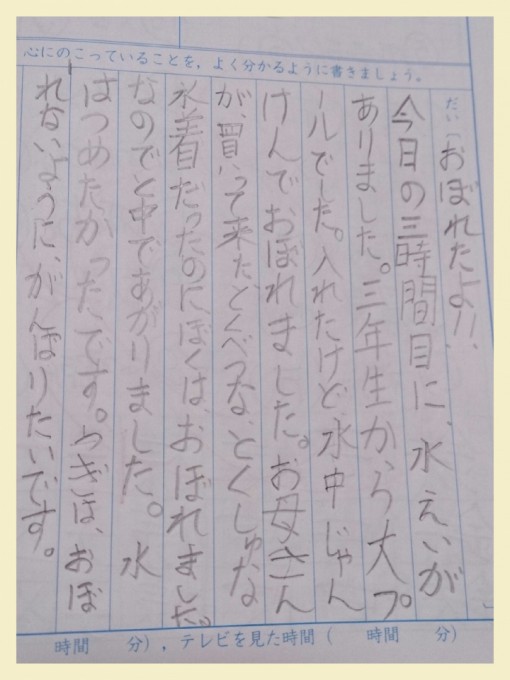 心にのこっていることを，よく分かるように書きましょう。
だい「おぼれたよ!!」
今日の三時間目に、水えいが
ありました。三年生から大プ
ールでした。入れたけど、水中じゃん
けんでおぼれました。お母さん
が、買って来たとくべつな、とくしゅな
水着だったのにぼくは、おぼれました。
なのでと中であがりました。水
はつめたかったです。つぎは、おぼ
れないように、がんばりたいです。
時間　　分），テレビを見た時間（　　時間　　分）